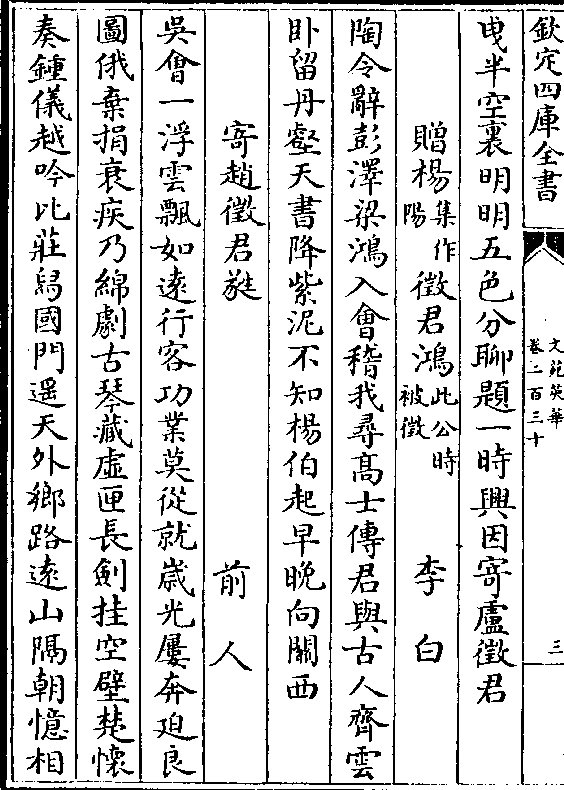 欽定四庫全書
文苑英華
卷二百三十
三
曳半空裏明明五色分聊題一時興因寄盧徵君
贈楊集作陽徵君鴻此公時被徵 李白
陶令辭彭澤梁鴻入會稽我尋髙士傳君與古人齊雲
卧留丹壑天書降紫泥不知楊伯起早晚向關西
寄趙徵君蕤 前人
吳會一浮雲飄如逺行客功業莫從就歳光屢奔廹良
圖俄棄捐衰疾乃綿劇古琴藏虛匣長劍挂空壁楚懐
奏鍾儀越吟比莊舄國門遥天外鄉路逺山隔朝憶相